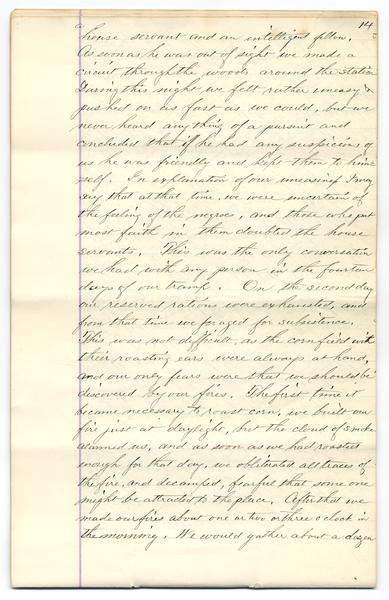 14
a house servant and an intelligent fellow.
As soon as he was out of sight we made a
circuit through the woods around the station
During this night we felt rather uneasy &
pushed on as fast as we could, but we
never heard anything of a pursuit and
concluded that if he had any suspicions of
us he was friendly and kept them to him=
self. In explanation of our uneasiness I may
say that at that time, we were uncertain of
the feeling of the negroes, and those who put
most faith in them doubted the house
servants. This was the only conversation
we had with any person in the fourteen
days of our tramp. On the second day
our reserved rations were exhausted, and
from that time we foraged for subsistence.
This was not difficult, as the cornfields with
their roasting ears were always at hand,
and our only fears were that we should be
discovered by our fires. The first time it
became necessary to roast corn, we built our
fire just at daylight, but the cloud of smoke
alarmed us, and as soon as we had roasted
enough for that day, we obliterated all traces of
the fire, and decamped, fearful that some one
might be attracted to the place. After that we
made our fires about one or two or three o'clock in
the morning. We would gather about a dozen